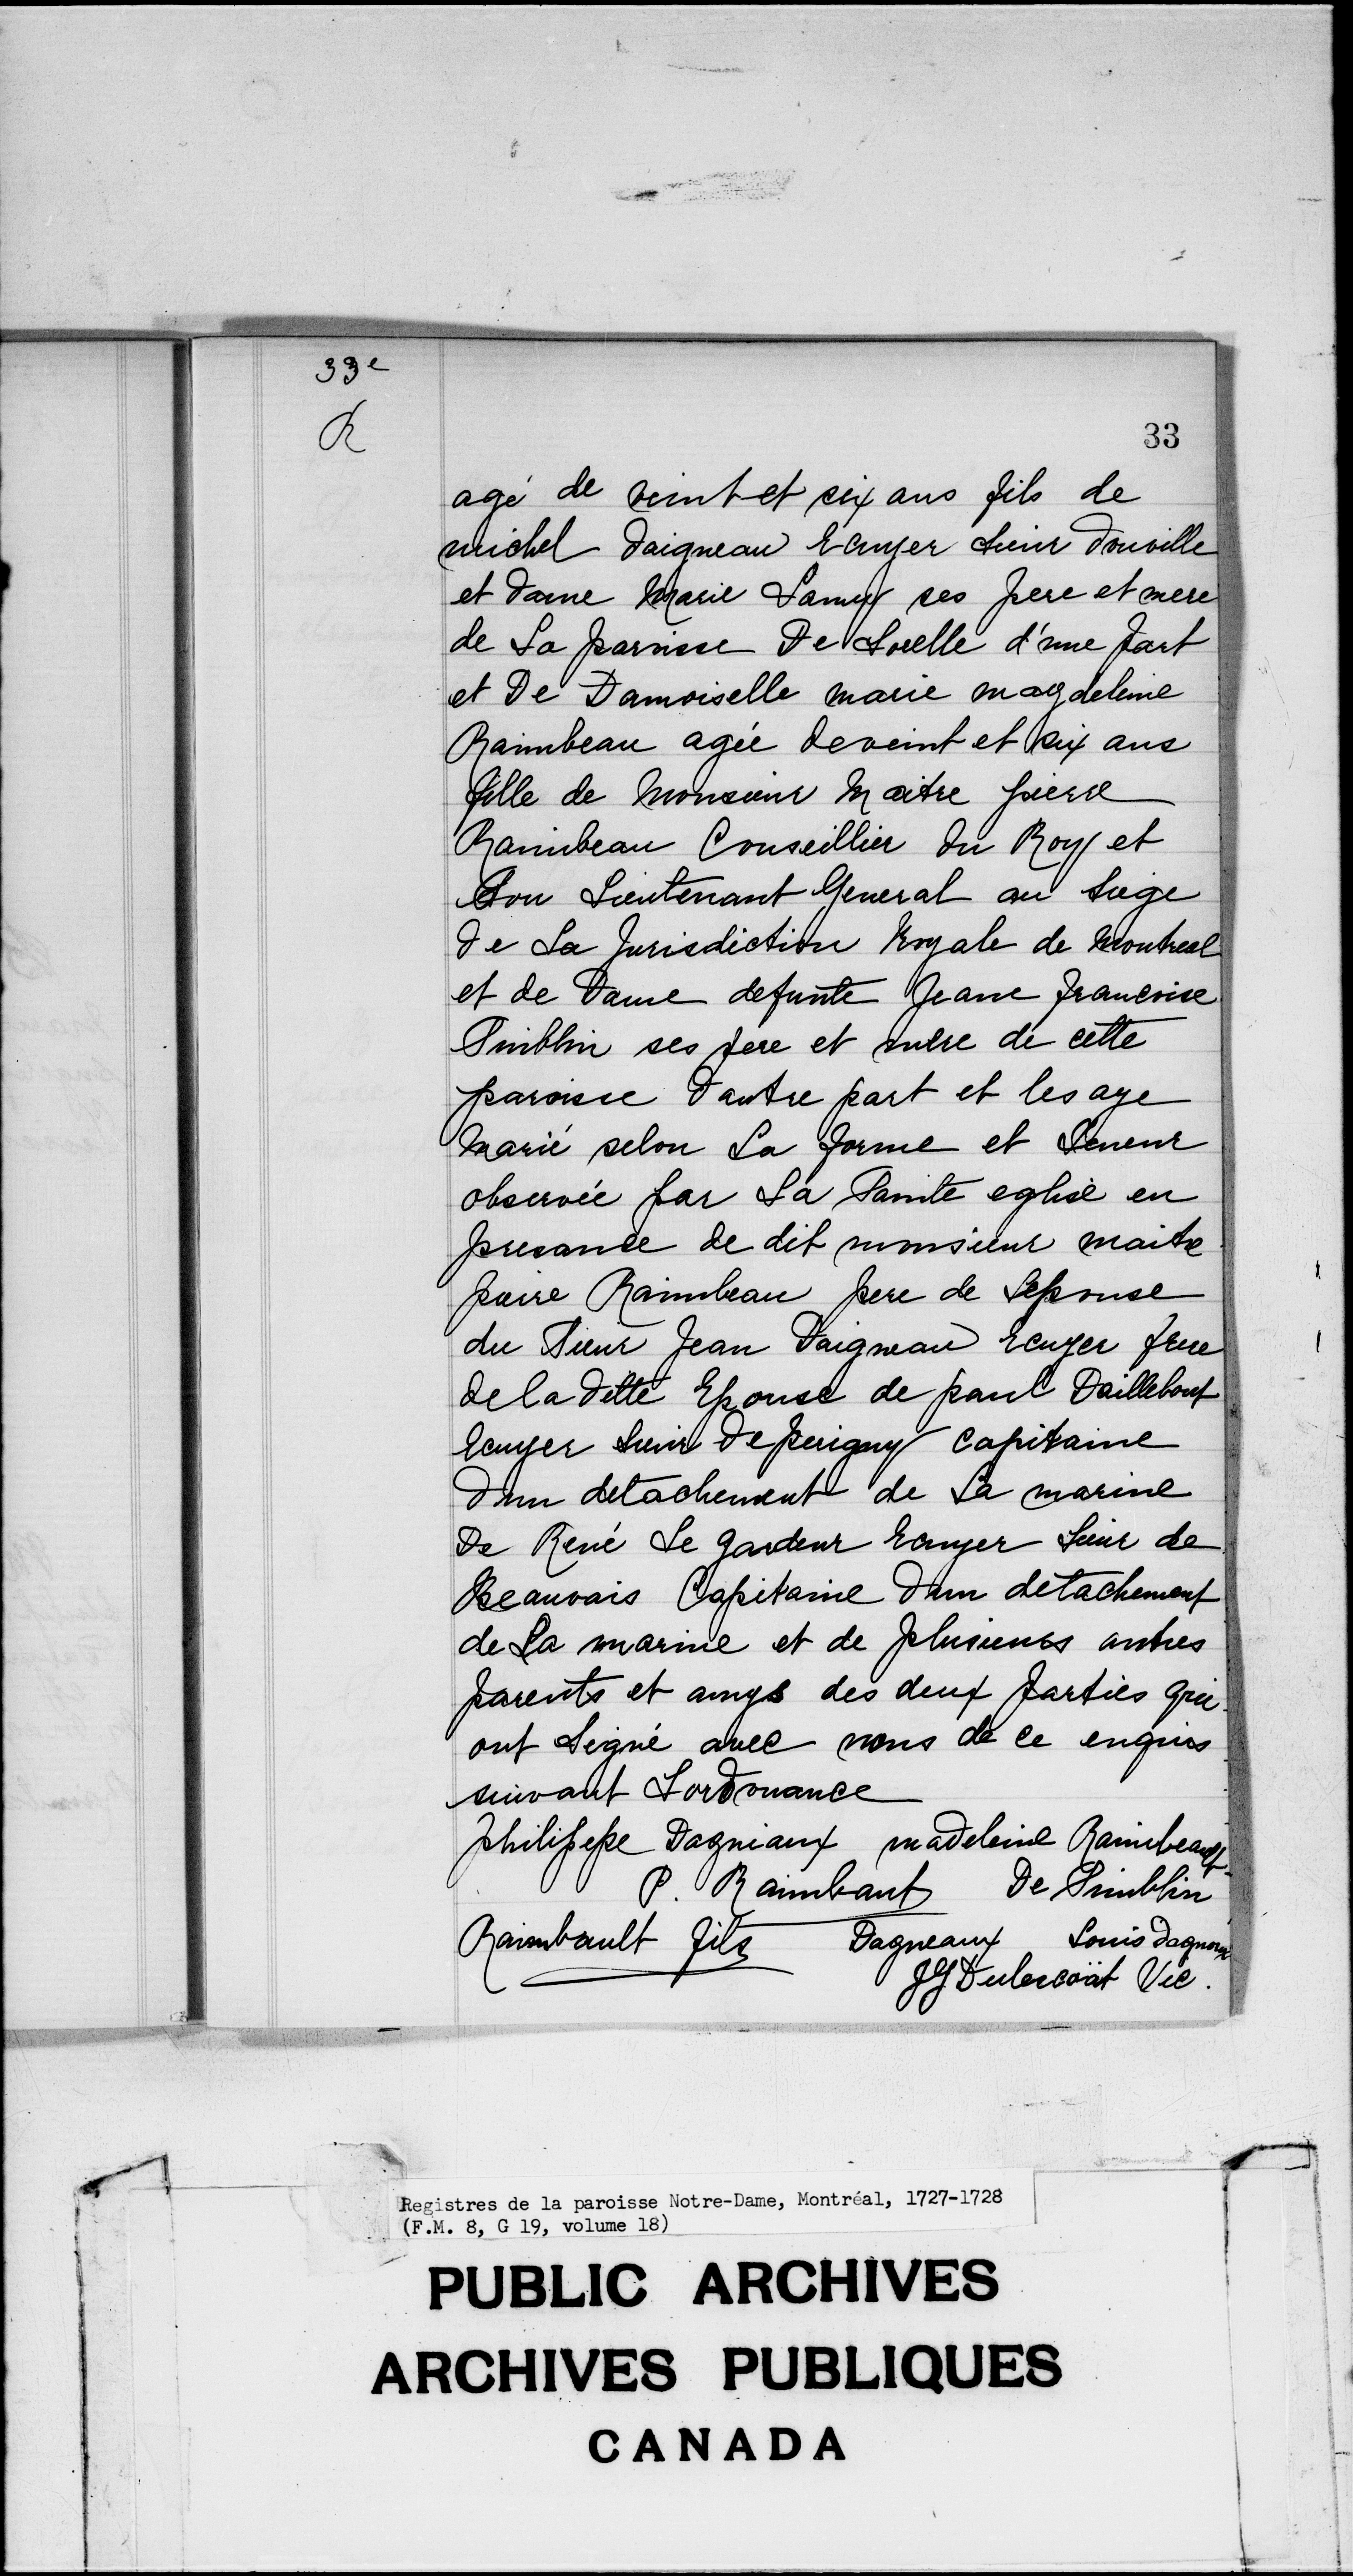 33e
R
33
agé de veint et six ans fils de
michel daigneau Ecuyer Sieur douville
et dame Marie Lamy ses pere et mere
de La paroisse De Sorelle d'une part
et De Damoiselle marie magdeleine
Raimbeau agée de veint et six ans
fille de Monsieur Maitre pierre
Raimbeau Conseillier du Roy et
Son Lieutenant General au Siege
de La Jurisdiction Royale de Montreal
et de Dame defunte Jeane francoise
Simblin ses pere et mere de cette
paroisse dautre part et les aye
Marié selon La forme et Teneur
observée par La Sainte eglise en
presance de dit monsieur maitre
pierre Raimbeau pere de Lepouse
du Sieur Jean Daigneau Ecuyer frere
de la ditte Epouse de paul Daillebout
Ecuyer Sieur de perigny capitaine
dun detachement de La marine
De René Le gardeur Ecuyer Sieur de
Beauvais Capitaine dun detachement
de La marine et de plusieurs autres
parents et amys des deux parties qui
ont Signé avec nous de ce enquis
suivant Lordonance
philippepe Dagniaux madeleine Raimbeault
P. Raimbaut De Simblin
Raimbault fils Dagneaux Louis dagneaux
JG Dulescoät Vic.
Registres de la paroisse Notre-Dame, Montréal, 1727-1728
(F.M. 8, G 19, volume 18)
PUBLIC ARCHIVES
ARCHIVES PUBLIQUES
CANADA